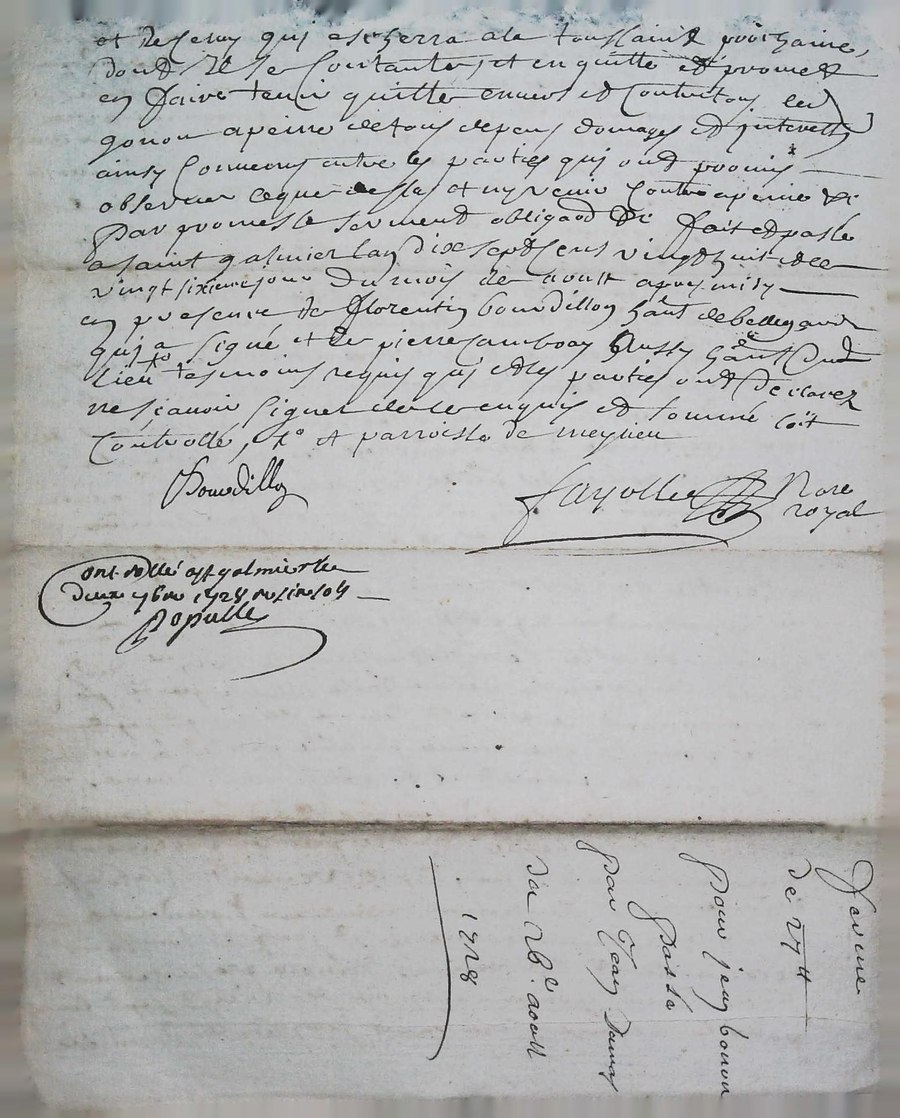 et de celuy qui escherra a la toussaint prochaine,
dont il se contante, et en quitte et promet
en faire tenir quitte envers et contre tous led
gonon a peine de tous depens domages et interests
ainsy convenus entre les parties qui ont promis
observer ce que dessus et ny venir contre a peine &
par promesse serment obligaon & fait et passé
a saint galmier lan dix sept cens vingt huit et le
vingt sixieme jour du mois de aoust apres midy
en presence de florentin bourdillon hant de bellegarde
qui a signé et de pierre hant dud
lieu tesmoins requis qui et les parties ont declarez
ne scavoir signer de ce enquis et sommé soit
controllé, et parroisse de meylieu
Bourdillon
fayolle Nore
royal
Controllé a st galmier le
deux 7bre 1728 r six sols
Populle
de 27tt
pour jean
passé
par Jean
du 26e aoust
1728